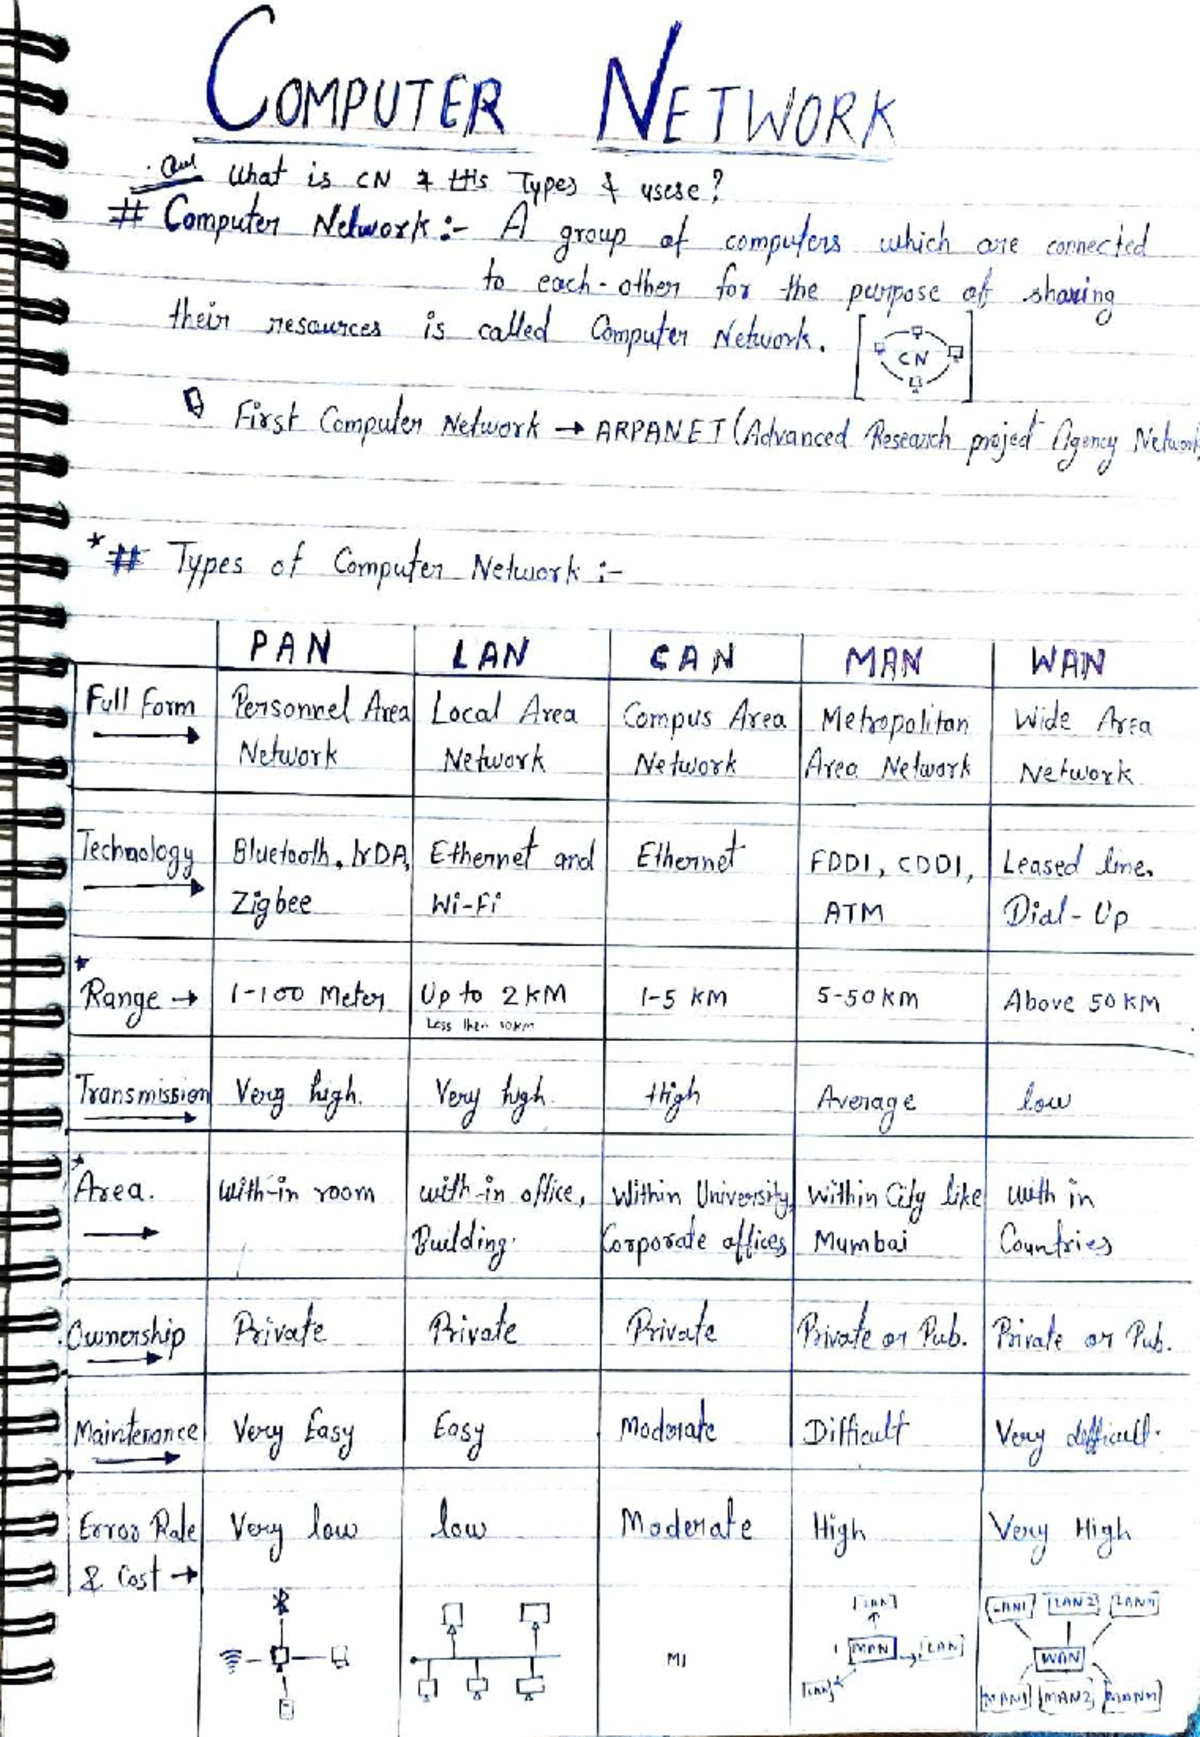 COMPUTER NETWORK
What is CN & its Types & usese?
# Computer Network :- A group of computers which are connected
to each-other for the purpose of sharing
their resources is called Computer Network.
CN
First Computer Network → ARPANET (Advanced Research project Agency Network
* # Types of Computer Network :-
PAN LAN CAN MAN WAN
Full Form Personnel Area Local Area Compus Area Metropolitan Wide Area
Network Network Network Area Network Network
Technology Bluetooth, IrDA, Ethernet and Ethernet FDDI, CDDI, Leased line.
Zigbee Wi-Fi ATM Dial-Up
* Range → 1-100 Meter Up to 2 KM 1-5 KM 5-50 KM Above 50 KM
Less then 10 KM
Transmission Very high. Very high. High Average low
* Area. with-in room with-in office, Within University, Within City like with in
Building. Corporate offices Mumbai Countries
Ownership Private Private Private Private or Pub. Private or Pub.
Maintenance Very Easy Easy Moderate Difficult Very difficult.
Error Rate Very low low Moderate High Very High
& Cost →
LAN LAN1 LAN2 LANn
MAN LAN WAN
LAN MAN1 MAN2 MANn